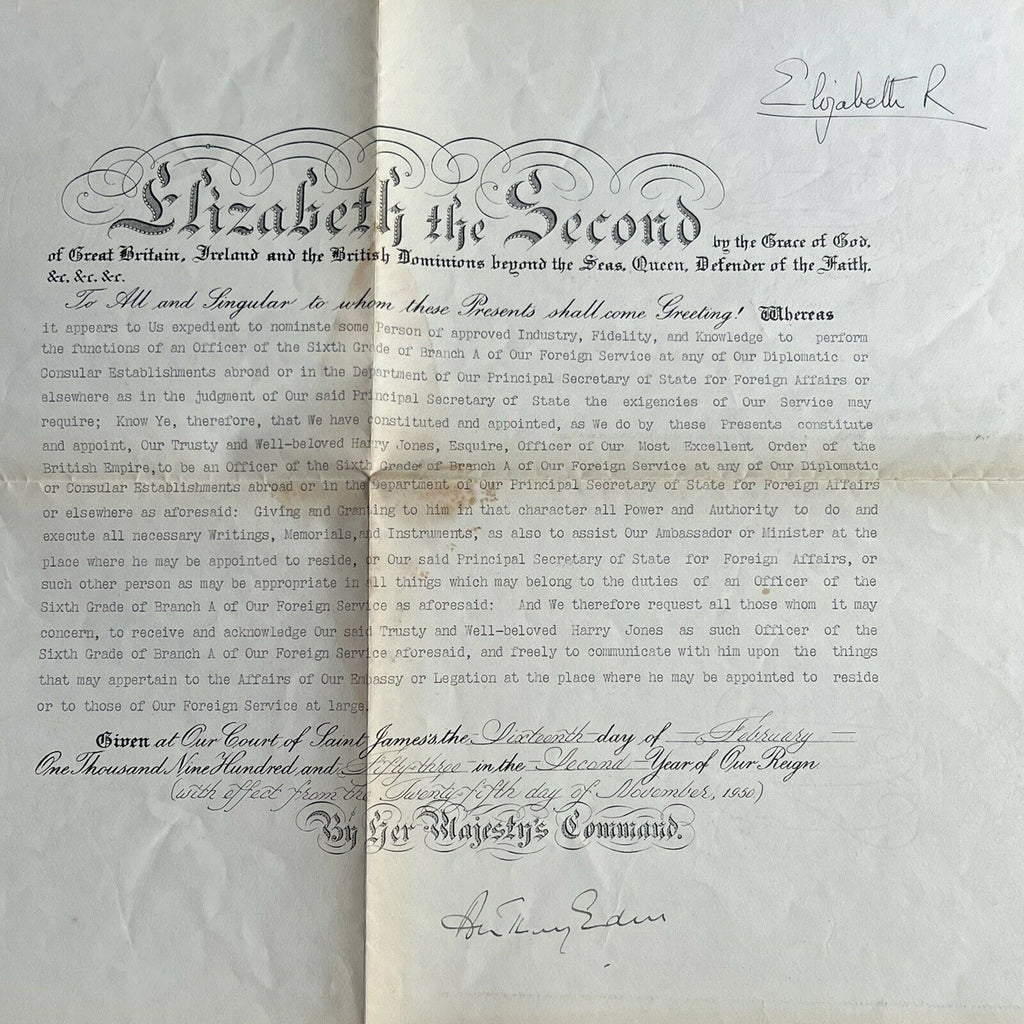 Elizabeth R
Elizabeth the Second by the Grace of God,
of Great Britain, Ireland and the British Dominions beyond the Seas, Queen, Defender of the Faith,
&c, &c. &c.
To All and Singular to whom these Presents shall come Greeting! Whereas
it appears to Us expedient to nominate some Person of approved Industry, Fidelity, and Knowledge to perform
the functions of an Officer of the Sixth Grade of Branch A of Our Foreign Service at any of Our Diplomatic or
Consular Establishments abroad or in the Department of Our Principal Secretary of State for Foreign Affairs or
elsewhere as in the judgment of Our said Principal Secretary of State the exigencies of Our Service may
require; Know Ye, therefore, that We have constituted and appointed, as We do by these Presents constitute
and appoint, Our Trusty and Well-beloved Harry Jones, Esquire, Officer of Our Most Excellent Order of the
British Empire,to be an Officer of the Sixth Grade of Branch A of Our Foreign Service at any of Our Diplomatic
or Consular Establishments abroad or in the Department of Our Principal Secretary of State for Foreign Affairs
or elsewhere as aforesaid: Giving and Granting to him in that character all Power and Authority to do and
execute all necessary Writings, Memorials,and Instruments, as also to assist Our Ambassador or Minister at the
place where he may be appointed to reside, or Our said Principal Secretary of State for Foreign Affairs, or
such other person as may be appropriate in all things which may belong to the duties of an Officer of the
Sixth Grade of Branch A of Our Foreign Service as aforesaid: And We therefore request all those whom it may
concern, to receive and acknowledge Our said Trusty and Well-beloved Harry Jones as such Officer of the
Sixth Grade of Branch A of Our Foreign Service aforesaid, and freely to communicate with him upon the things
that may appertain to the Affairs of Our Embassy or Legation at the place where he may be appointed to reside
or to those of Our Foreign Service at large.
Given at Our Court of Saint James's, the Sixteenth day of February
One Thousand Nine Hundred and Fifty-three in the Second Year of Our Reign
(with effect from the Twenty-fifth day of November, 1950)
By Her Majesty's Command.
Anthony Eden